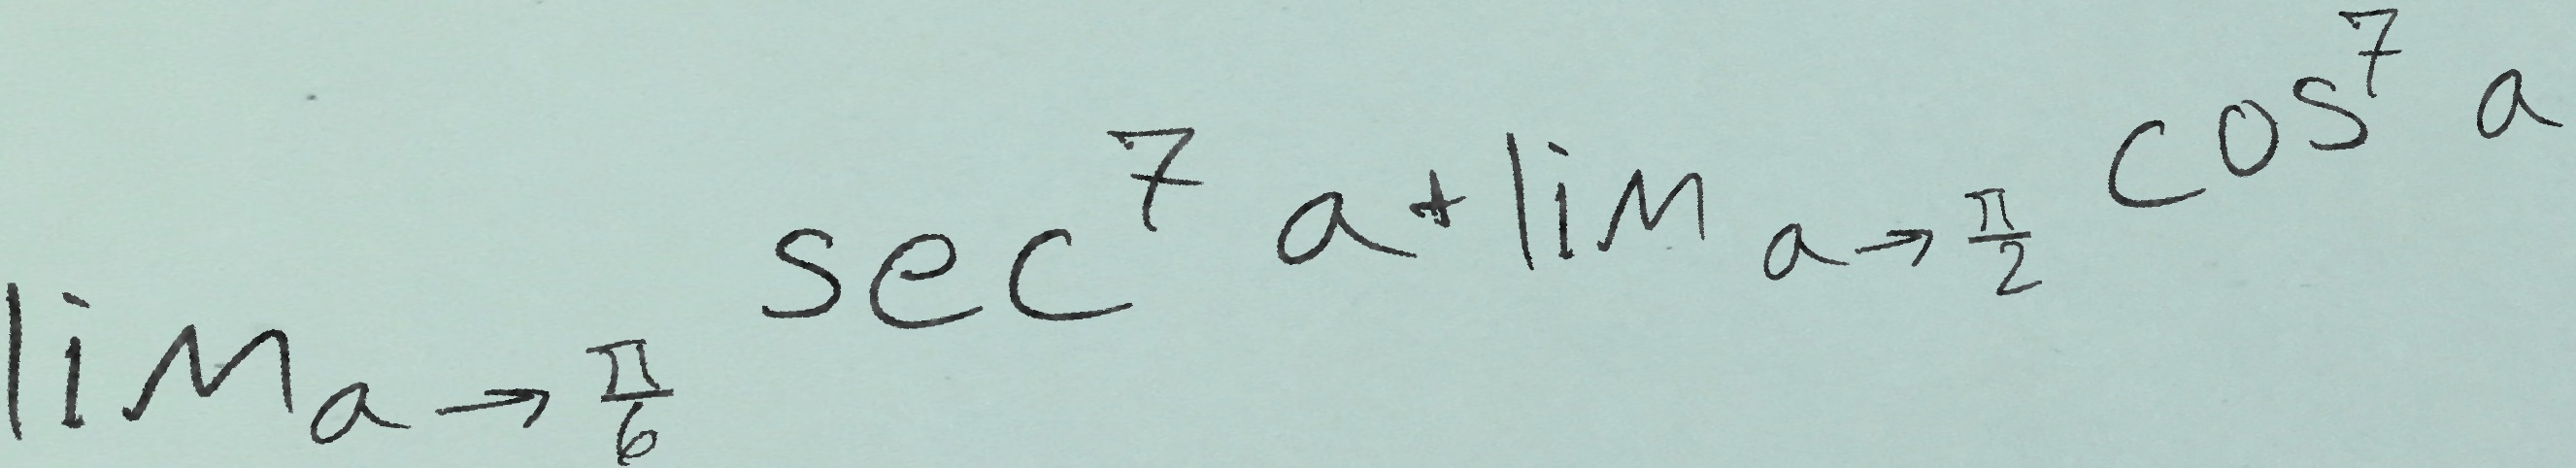 \lim_{a \to \frac{\pi}{6}} \sec^7 a + \lim_{a \to \frac{\pi}{2}} \cos^7 a